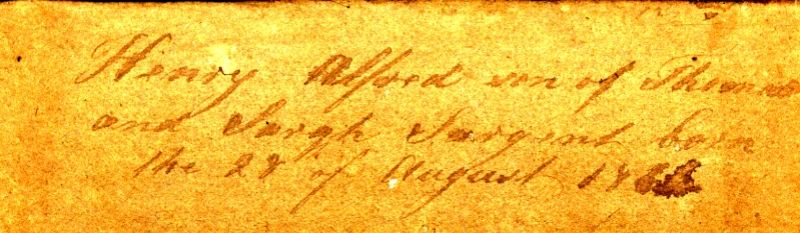 Henry Alford son of Thomas
and Sargh Sargent born
the 28 of August